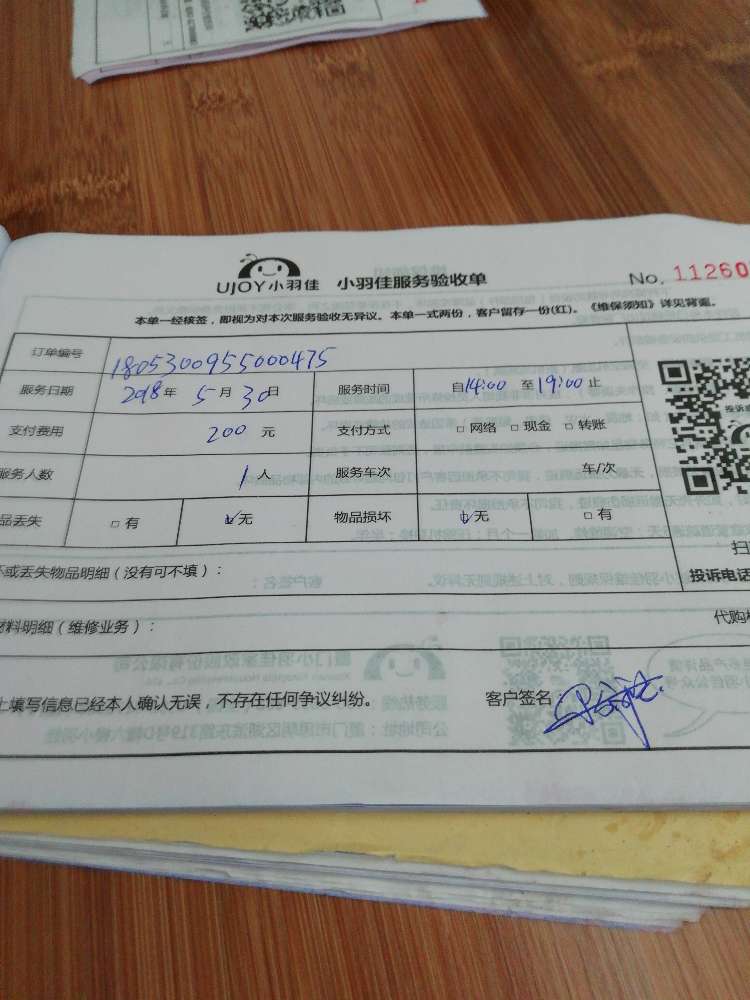 UJOY小羽佳 小羽佳服务验收单 No. 11260
本单一经核签，即视为对本次服务验收无异议。本单一式两份，客户留存一份(红)。《维保须知》详见背面。
订单编号 1805300955000475
服务日期 2018年 5月 30日 服务时间 自14:00 至19:00止
支付费用 200 元 支付方式 □ 网络 □ 现金 □ 转账
服务人数 1人 服务车次 车/次
品丢失 □ 有 ☑无 物品损坏 ☑无 □ 有
扫
坏或丢失物品明细（没有可不填）： 投诉电话
材料明细（维修业务）： 代购
上填写信息已经本人确认无误，不存在任何争议纠纷。 客户签名：